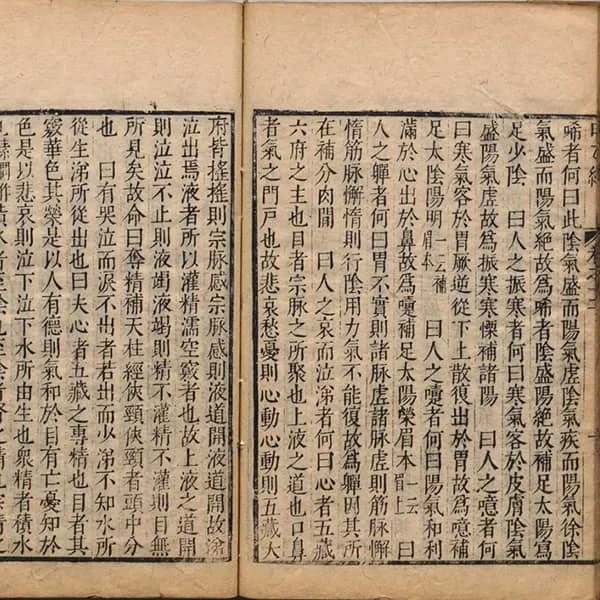 唏者何曰此陰氣盛而陽氣虛陰氣疾而陽氣徐陰
氣盛而陽氣絶故爲唏者陰盛陽絶故補足太陽寫
足少陰　曰人之振寒者何曰寒氣客於皮膚陰氣
盛陽氣虛故爲振寒寒慄補諸陽　曰人之噫者何
曰寒氣客於胃厥逆從下上散復出於胃故爲噫補
足太陰陽明一云補眉本　曰人之嚏者何曰陽氣和利
滿於心出於鼻故爲嚏補足太陽榮眉本一云眉上　曰
人之嚲者何曰胃不實則諸脉虛諸脉虛則筋脉懈
惰筋脉懈惰則行陰用力氣不能復故爲嚲因其所
在補分肉間　曰人之哀而泣涕者何曰心者五藏
六府之主也目者宗脉之所聚也上液之道也口鼻
者氣之門戶也故悲哀愁憂則心動心動則五藏大
府皆搖搖則宗脉感宗脉感則液道開液道開故涕
泣出焉液者所以灌精濡空竅者也故上液之道開
則泣泣不止則液竭液竭則精不灌精不灌則目無
所見矣故命曰奪精補天柱經俠頸俠頸者頭中分
也　曰有哭泣而淚不出者若出而少涕不知水所
從生涕所從出也曰夫心者五藏之專精也目者其
竅華色其榮是以人有德則氣和於目有亡憂知於
色是以悲哀則泣下泣下水所由生也衆精者積水